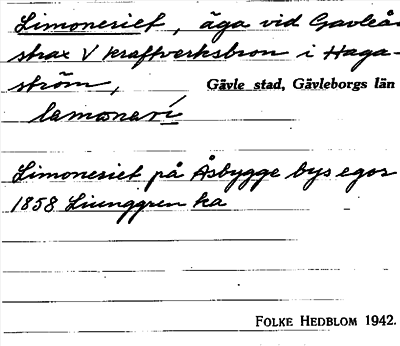 Limoneriet, äga vid Gavleån
strax V kraftverksbron i Haga-
ström, Gävle stad, Gävleborgs län
lamonerí
Limoneriet på Åsbygge bys egor
1858 Liunggren ka
FOLKE HEDBLOM 1942.